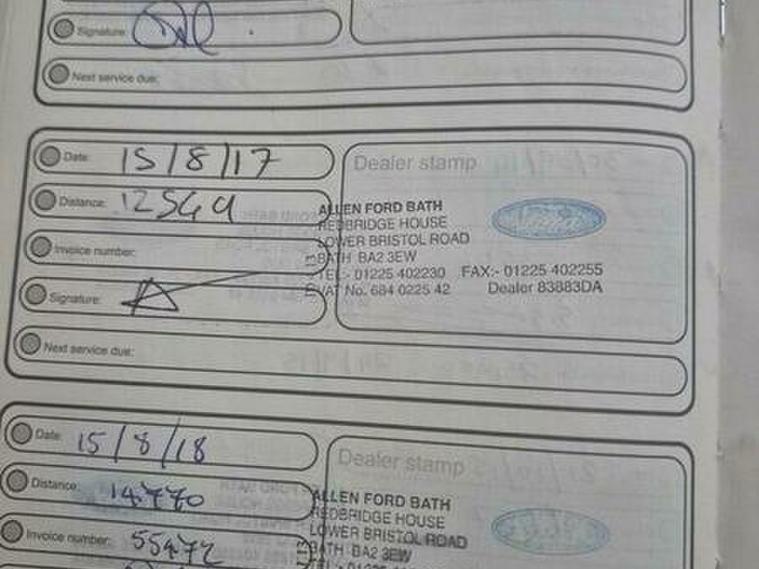 Signature:
Next service due:
Date: 15/8/17
Distance: 12549
Invoice number:
Signature:
Next service due:
Dealer stamp
ALLEN FORD BATH
REDBRIDGE HOUSE
LOWER BRISTOL ROAD
BATH BA2 3EW
TEL:- 01225 402230 FAX:- 01225 402255
VAT No. 684 0225 42 Dealer 83883DA
Date: 15/8/18
Distance: 14770
Invoice number: 55472
Dealer stamp
ALLEN FORD BATH
REDBRIDGE HOUSE
LOWER BRISTOL ROAD
BATH BA2 3EW